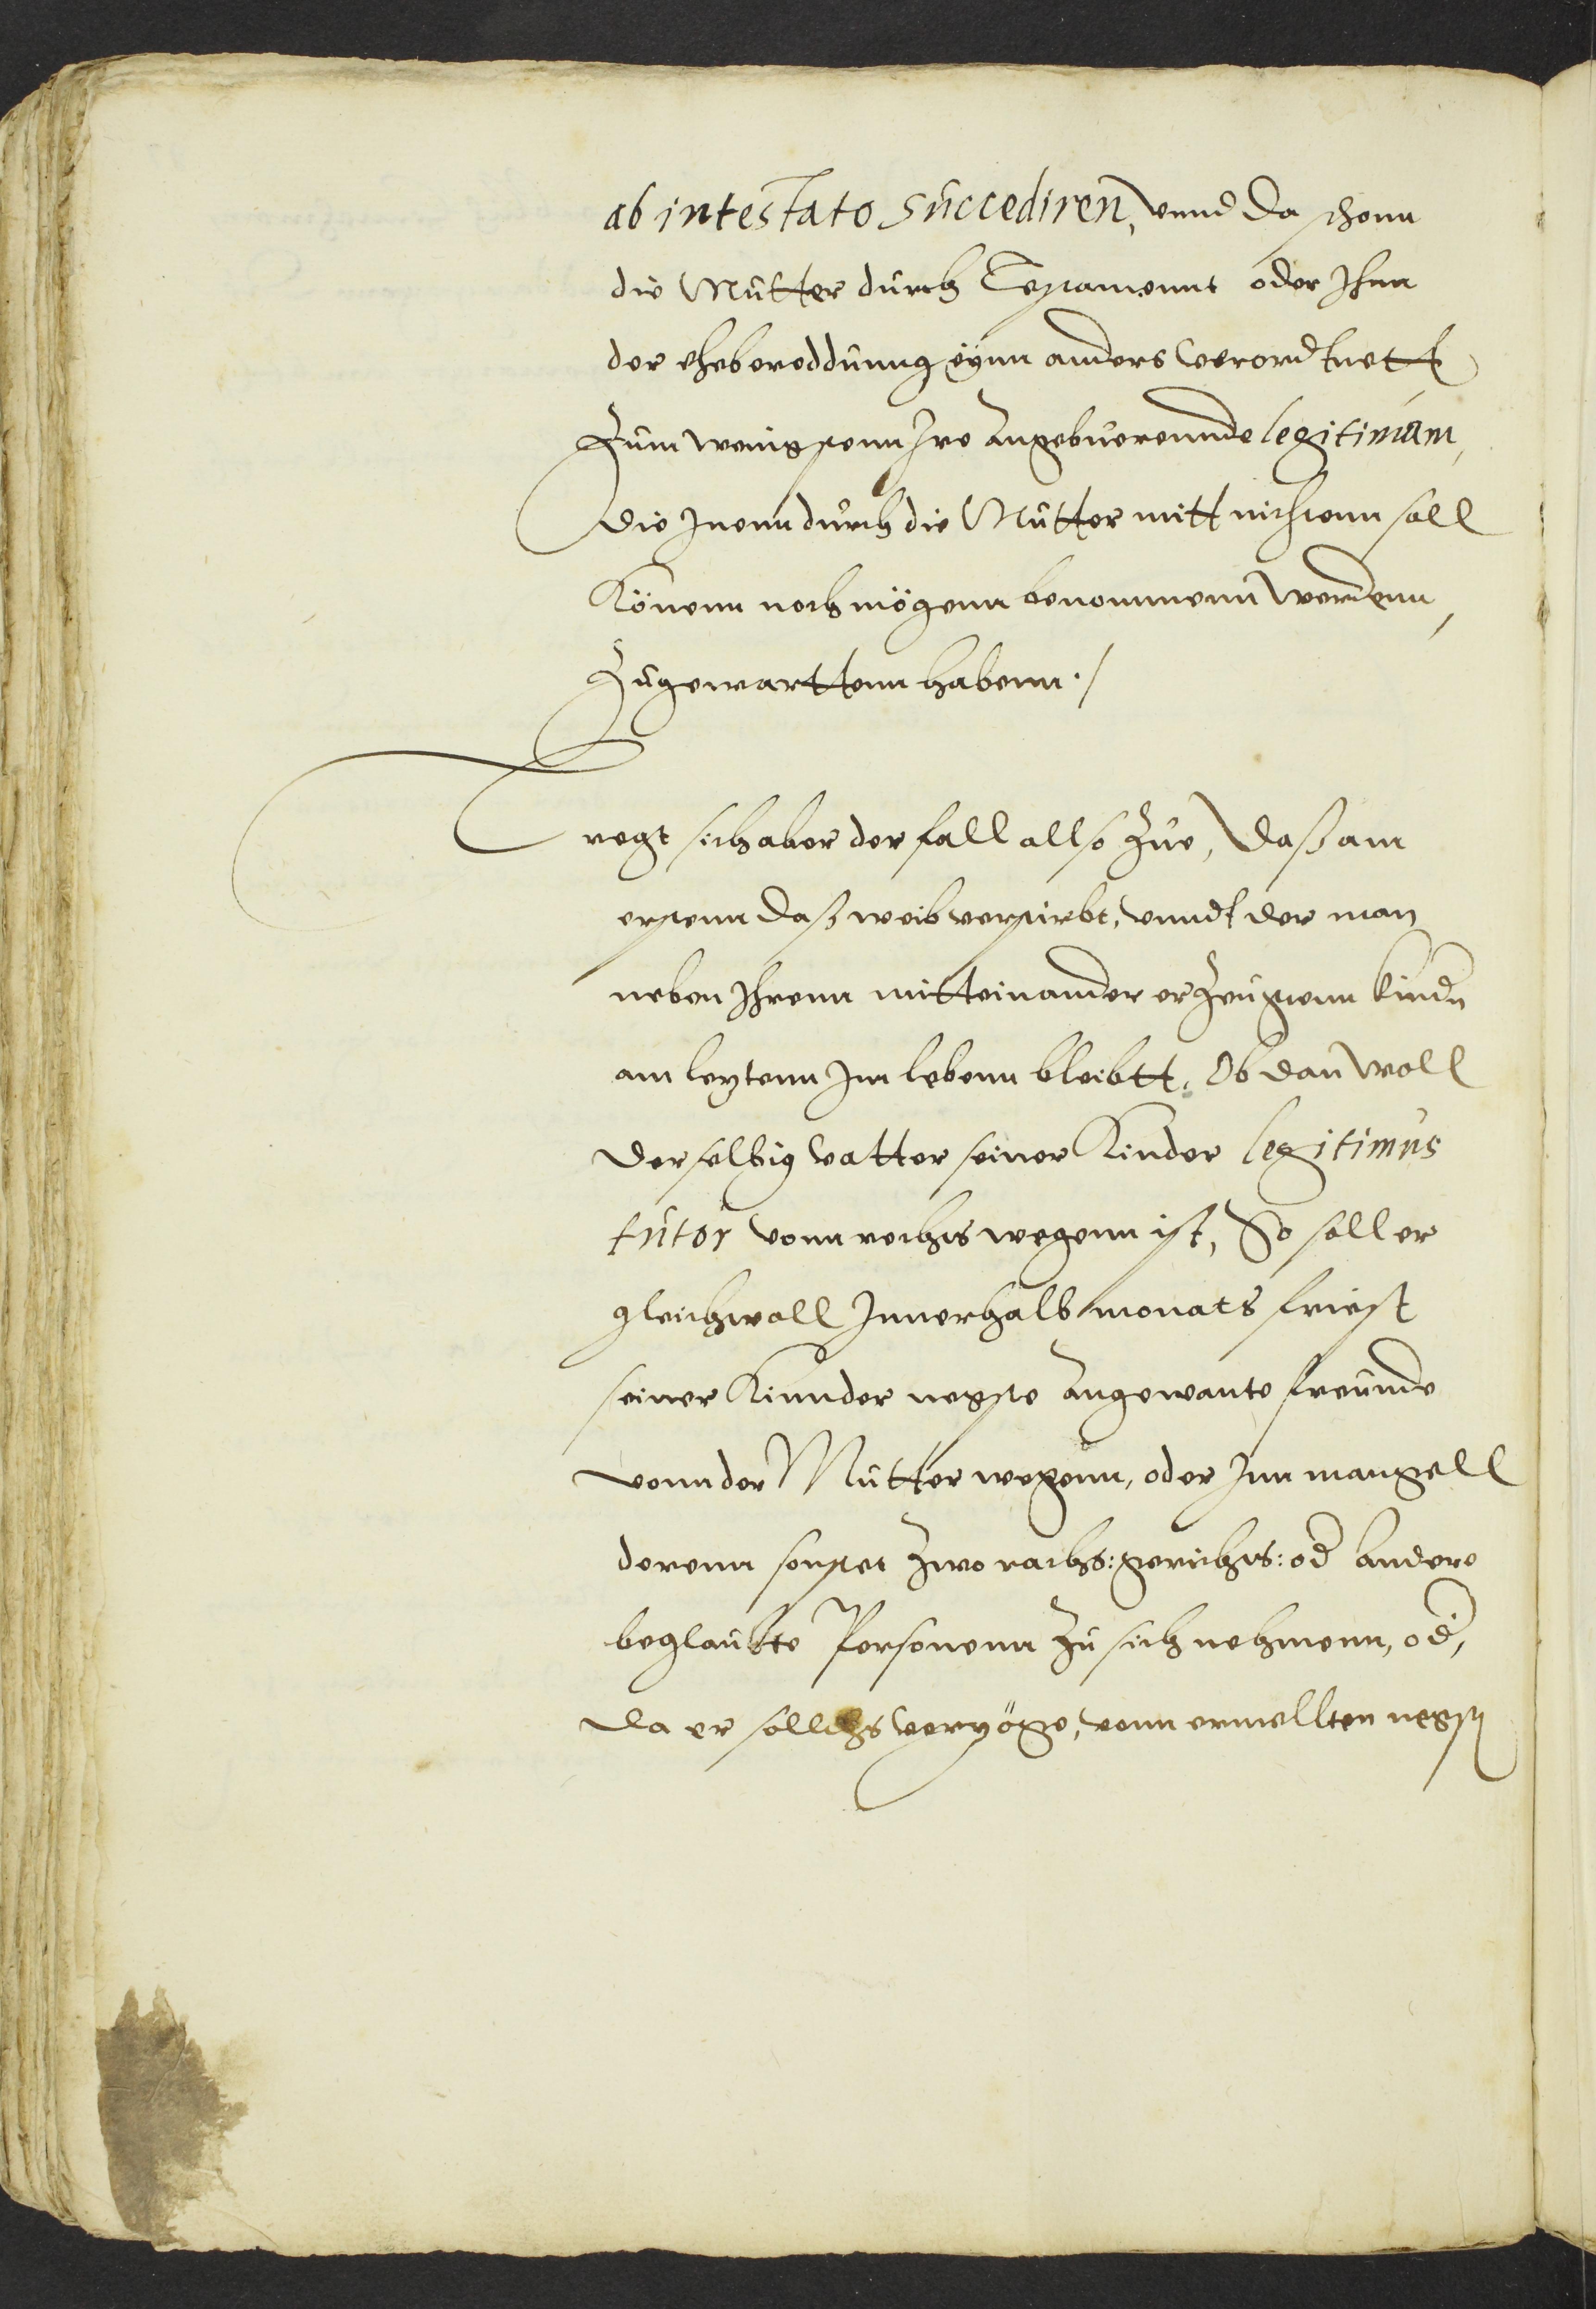 ab intestato succediren, vnnd da schonn
die Mutter durch Testamennt oder Ihnn
der ehebereddunng eynn anders verordtnett
Zum wenigstenn Ire angebuerennde legitimam,
die Inenn durch die Mutter mitt nichtenn soll
Könenn noch mögenn benommenn werdenn,
Zugewarttenn habenn./
Tregt sich aber der fall allso Zue, daß am
erstenn daß weib verstirbt, vnndt der man
neben Ihrenn mitteinander erzeugtenn kindn
am leztenn Im lebenn bleibtt, Ob dan woll
derselbig vatter seiner Kinder legitimus
tutor vonn rechts wegenn ist, So soll er
gleichwoll Innerhalb monats friest
seiner Kinnder negste angewante freunde
vonn der Mutter wegenn, oder Inn mangell
derenn sonstet Zwo raths: gerichts: od andere
beglaubte Personenn Zu sich nehmenn, od,
da er sollichs verzöge, vonn ermellten negst